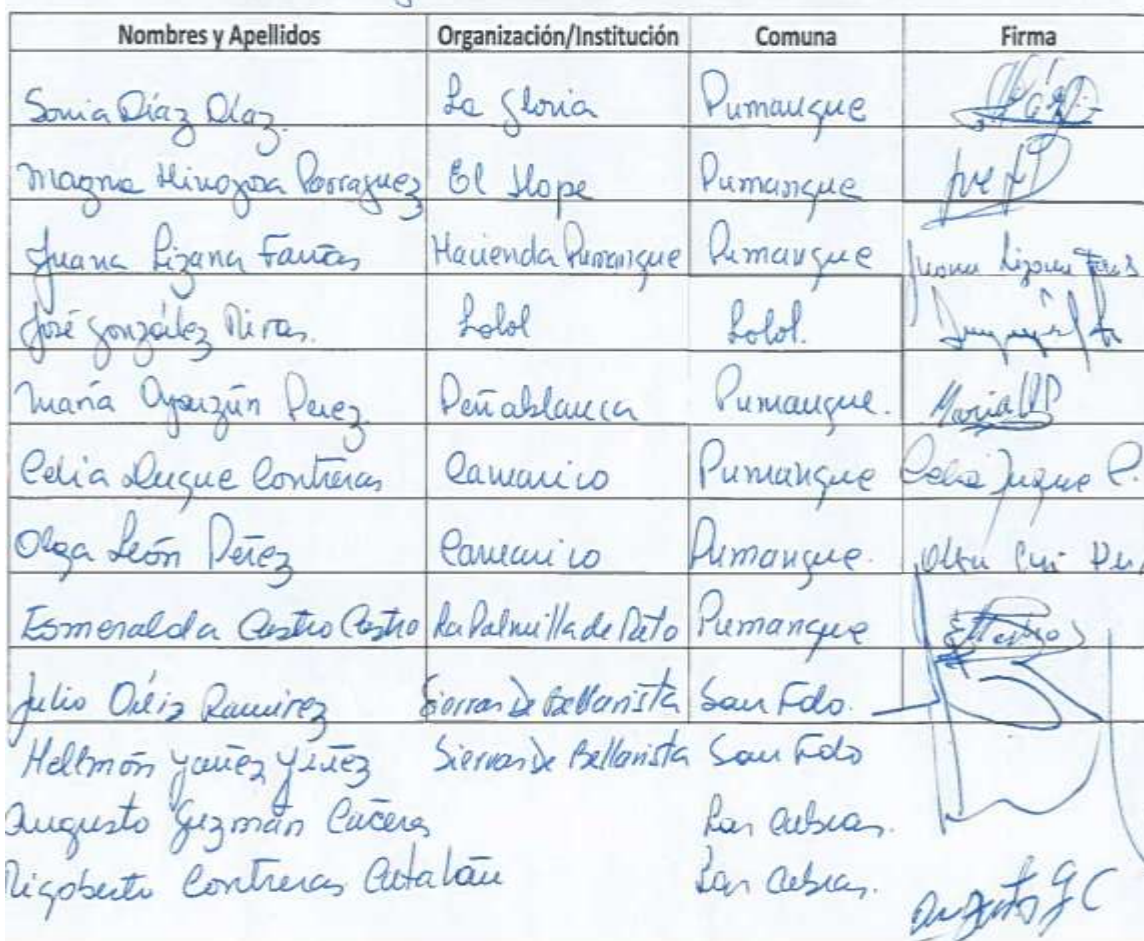 Nombres y Apellidos Organización/Institución Comuna Firma
Sonia Díaz Díaz. La Gloria Pumanque
Magna Hinojosa Parraguez El Llope Pumanque
Juana Lizana Farías Hacienda Pumanque Pumanque Juana Lizana
José González Lolol Lolol.
María Oyarzún Perez Peñablanca Pumanque. Maria
Celia Duque Contreras Camarico Pumanque Celia Duque C.
Olga León Pérez Camarico Pumanque.
Esmeralda Castro Castro La Palmilla de Pumanque
Julio Ramirez Sierras de Bellavista San Fdo.
Yañez Sierras de Bellavista San Fdo
Augusto Guzmán Cáceres Las Cabras.
Rigoberto Contreras Catalán Las Cabras.
Augusto G C